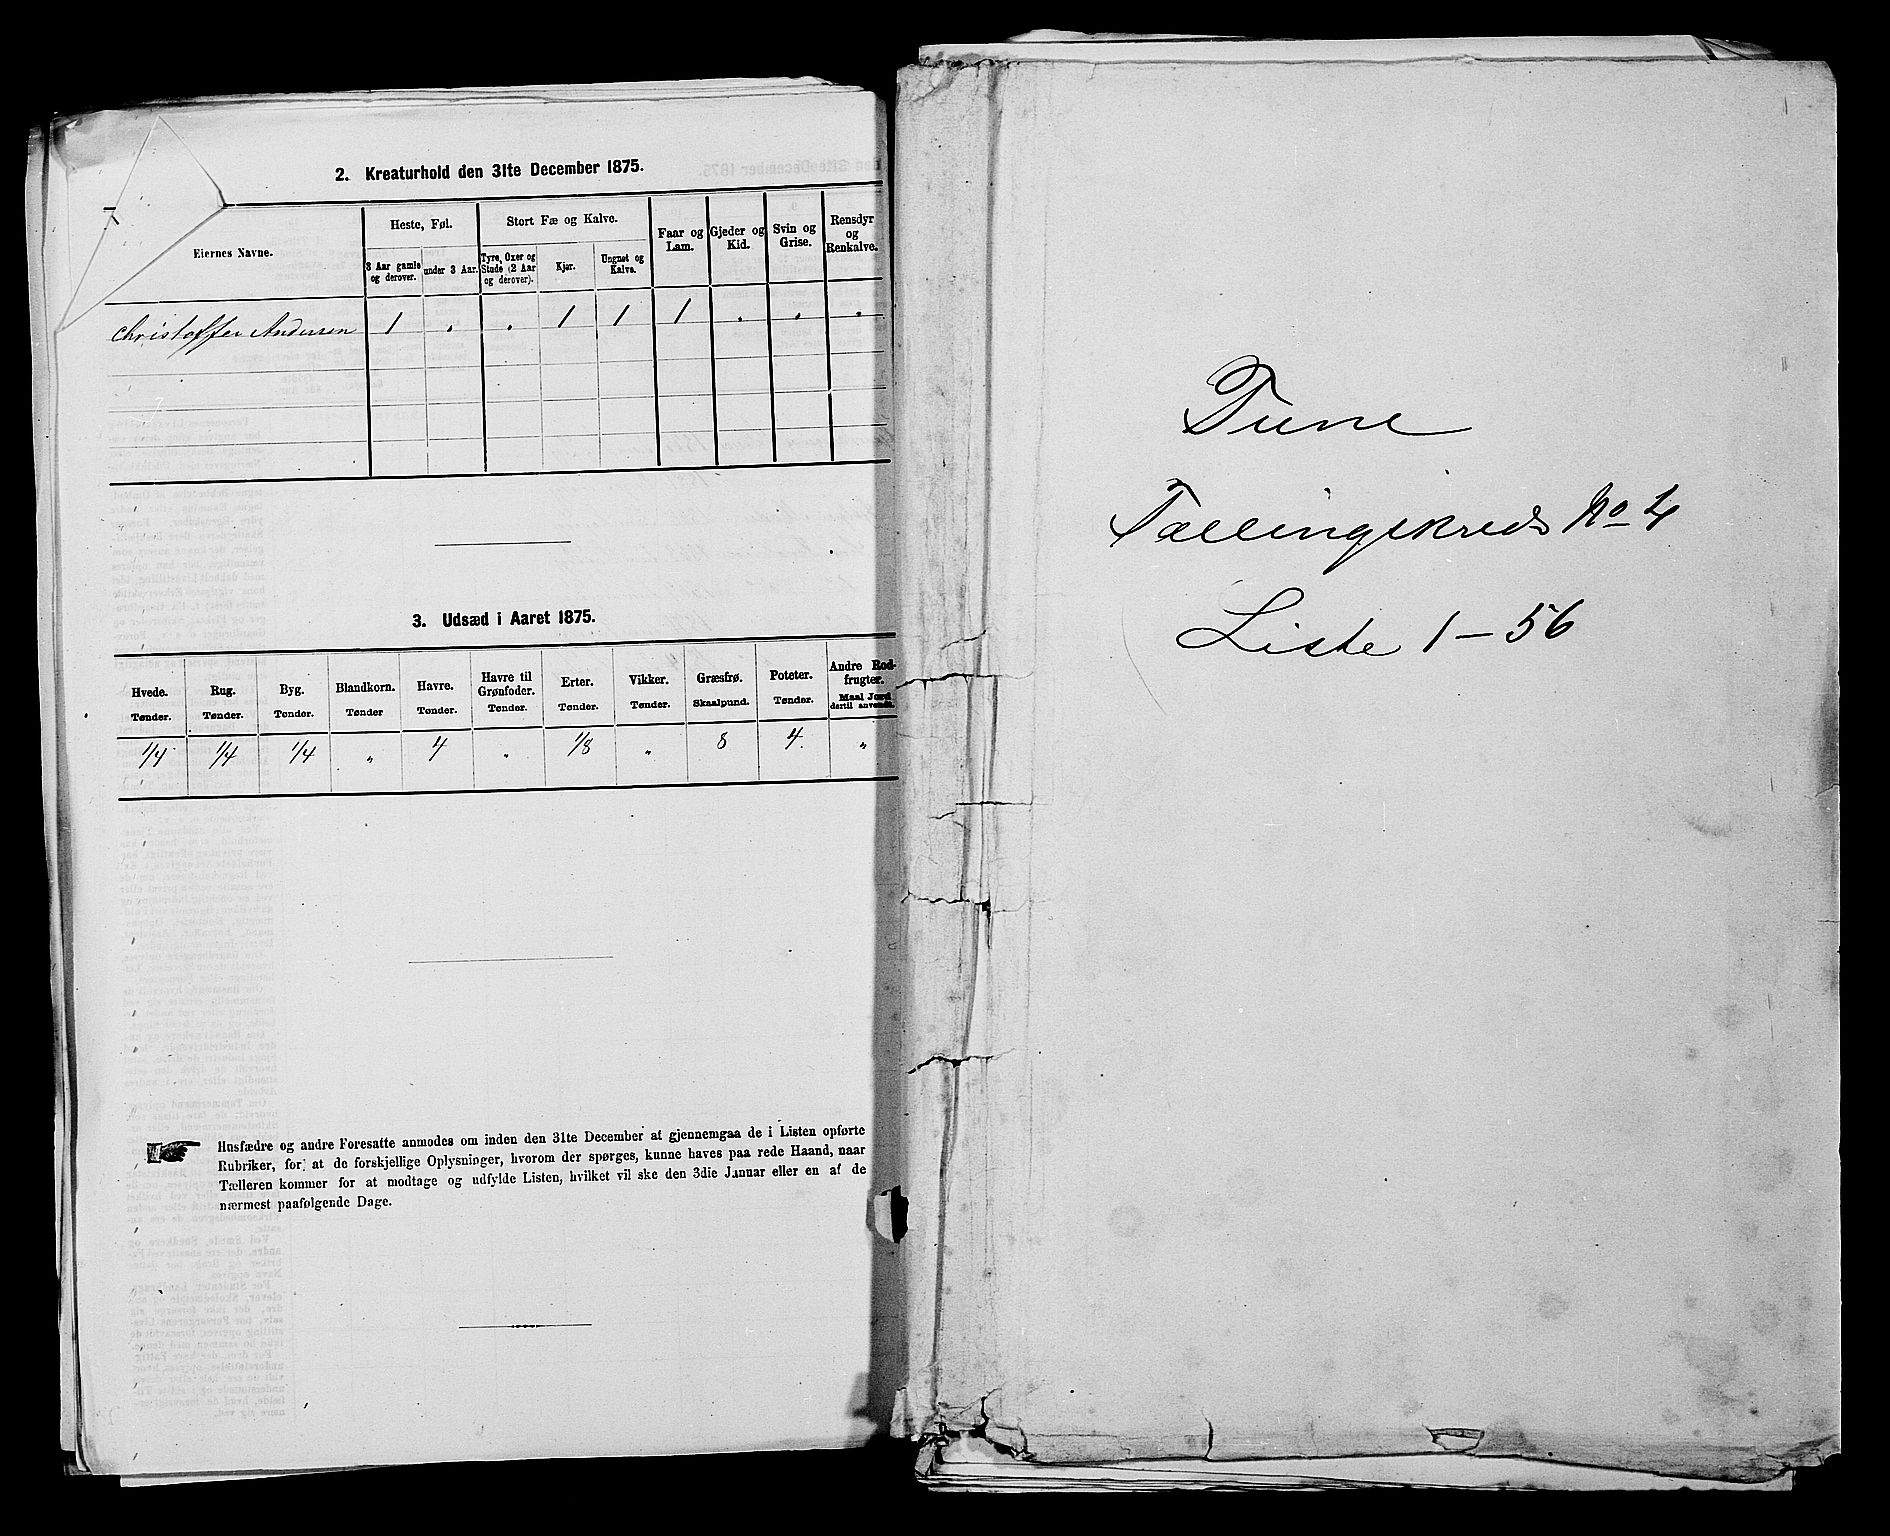 2. Kreaturhold den 31te December 1875.
Eiernes Navne.
Heste, Føl.
3 Aar gamle og derover.
under 3 Aar.
Stort Fæ og Kalve.
Tyre, Oxer og Stude (2 Aar og derover).
Kjør.
Ungnøt og Kalve.
Faar og Lam.
Gjeder og Kid.
Svin og Grise.
Rensdyr og Renkalve.
Christoffer Andersen 1 „ „ 1 1 1 „ „ „
3. Udsæd i Aaret 1875.
Hvede. Rug. Byg. Blandkorn. Havre. Havre til Grønfoder. Erter. Vikker. Græsfrø. Poteter. Andre Rodfrugter.
Tønder. Tønder. Tønder. Tønder Tønder. Tønder. Tønder. Tønder. Skaalpund. Tønder. Maal Jord dertil anvendt.
1/4 1/4 1/4 „ 4 „ 1/8 „ 8 4. „
Husfædre og andre Foresatte anmodes om inden den 31te December at gjennemgaa de i Listen opførte
Rubriker, for at de forskjellige Oplysninger, hvorom der spørges, kunne haves paa rede Haand, naar
Tælleren kommer for at modtage og udfylde Listen, hvilket vil ske den 3die Januar eller en af de
nærmest paafølgende Dage.
Tune
Tællingskreds No 4
Liste 1 – 56